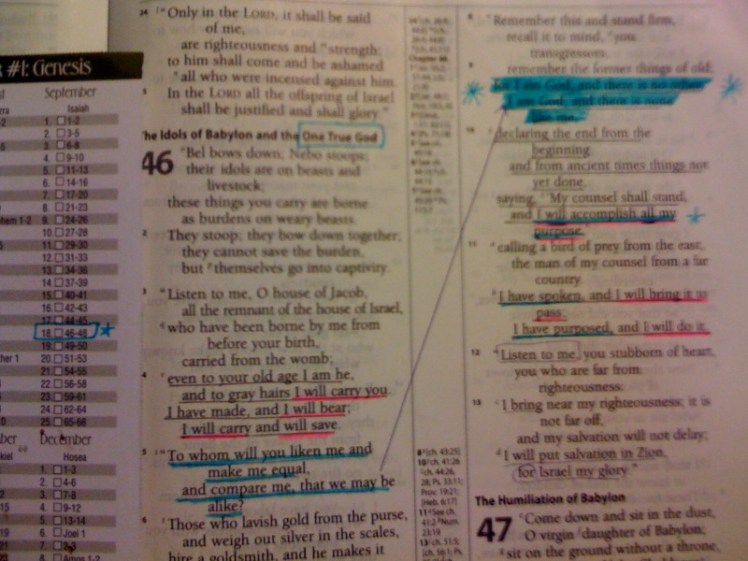 #1: Genesis
September
Isaiah
1. 1-2
2. 3-5
3. 6-8
4. 9-10
5. 11-13
6. 14-16
7. 17-20
8. 21-23
9. 24-26
10. 27-28
11. 29-30
12. 31-33
13. 34-36
14. 37-39
15. 40-41
16. 42-43
17. 44-45
18. 46-48
19. 49-50
20. 51-53
21. 54-55
22. 56-58
23. 59-61
24. 62-64
25. 65-66
December
Hosea
1. 1-3
2. 4-6
3. 7-8
4. 9-12
5. 13-14
6. Joel 1
7. 2-3
8. Amos 1-2
24 "Only in the LORD, it shall be said
of me,
are righteousness and strength;
to him shall come and be ashamed
all who were incensed against him.
In the LORD all the offspring of Israel
shall be justified and shall glory."
The Idols of Babylon and the One True God
46 Bel bows down; Nebo stoops;
their idols are on beasts and
livestock;
these things you carry are borne
as burdens on weary beasts.
2 They stoop; they bow down together;
they cannot save the burden,
but themselves go into captivity.
3 "Listen to me, O house of Jacob,
all the remnant of the house of Israel,
who have been borne by me from
before your birth,
carried from the womb;
4 even to your old age I am he,
and to gray hairs I will carry you.
I have made, and I will bear;
I will carry and will save.
5 "To whom will you liken me and
make me equal,
and compare me, that we may be
alike?
6 Those who lavish gold from the purse,
and weigh out silver in the scales,
hire a goldsmith, and he makes it
8 "Remember this and stand firm,
recall it to mind, you
transgressors,
9 remember the former things of old;
for I am God, and there is no other;
I am God, and there is none
like me,
10 declaring the end from the
beginning
and from ancient times things not
yet done,
saying, 'My counsel shall stand,
and I will accomplish all my
purpose,'
11 calling a bird of prey from the east,
the man of my counsel from a far
country.
I have spoken, and I will bring it to
pass;
I have purposed, and I will do it.
12 "Listen to me, you stubborn of heart,
you who are far from
righteousness:
13 I bring near my righteousness; it is
not far off,
and my salvation will not delay;
I will put salvation in Zion,
for Israel my glory."
The Humiliation of Babylon
47 Come down and sit in the dust,
O virgin daughter of Babylon;
sit on the ground without a throne,